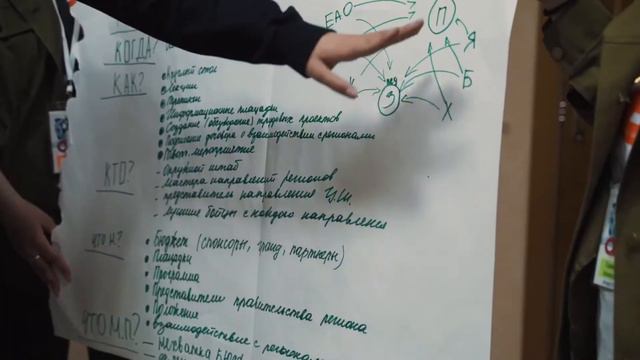 ЕАО
П
Я
Б
Х
З
КОГДА?
КАК?
• Круглый стол
• Лекции
• Тренинги
• Информационные площадки
• Создание (обсуждение) трудовых проектов
• Подписание договора о взаимодействии с регионами
мероприятие
КТО?
- Окружной штаб
- мастера направлений регионов
- представитель направления Ц.Ш.
- лучшие бойцы с каждого направления
ЧТО Н.?
• Бюджет (спонсоры, гранд, партнеры)
• Площадки
• Программа
• Представители правительства региона
• Положение
• взаимодействие с регионами
ЧТО М.П?
- Нехватка